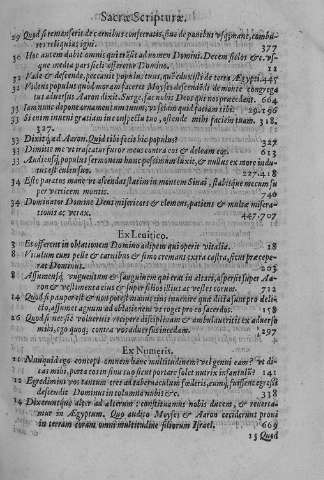 Sacræ Scripturæ.
29 Quod si remanserit de carnibus consecratis, siue de panibus vsq; mane, combures reliquias igni. 377
30 Hoc autem dabit omnis qui transit ad nomen Domini. Decem siclos &c. media pars sicli offeretur Domino. 22
32 Vade & descende, peccauit populus tuus, quē eduxisti de terra Ægypti. 445
32 Videns populus quod moram faceret Moyses descendēdi de monte congregatus aduersus Aaron dixit. Surge, fac nobis Deos qui nos præcedant. 604
33 Iam nunc depone ornamentum tuum, vt sciam quid faciam tibi. 29.196
33 Si enim inueni gratiam in conspectu tuo, ostende mihi faciem tuam. 318.
327.
32 Dixitq; ad Aaron. Quid tibi fecit hic populus? 327
32 Dimitte me vt irascatur furor meus contra eos & deleam eos. 613
33 Audiensq; populus sermonem hunc pessimum luxit, & nullus ex more indutus est cultu suo. 227.418
34 Esto paratus mane vt ascendas statim in montem Sinai, stabisque mecum super verticem montis. 40
34 Dominator Domine Deus misericors & clemens, patiens & multæ miserationis ac verax. 447.707
Ex Leuitico.
3 Et offerent in oblationem Domino adipem qui operit vitalia. 18
8 Vitulum cum pelle & carnibus & fimo cremans extra castra, sicut præceperat Dominus. 263
8 Assumensq; vnguentum & sanguinem qui erat in altari, aspersit super Aaron & vestimenta eius & super filios illius ac vestes eorum. 712
14 Quod si pauper est & non potest manus eius inuenire quæ dicta sunt pro delicto, assumet agnum ad oblationem vt roget pro eo sacerdos. 158
26 Quod si nec sic volueritis recipere disciplinam & ambulaueritis ex aduerso mihi, ego quoq; contra vos aduersus incedam. 297
Ex Numeris.
11 Nunquid ego concepi omnem hanc multitudinem vel genui eam? vt dicas mihi, porta eos in sinu tuo sicut portare solet nutrix infantulū 141
12 Egredimini vos tantum tres ad tabernaculum fœderis, cumq; fuissent egressi descendit Dominus in columna nubis &c. 318
14 Dixeruntque alter ad alterum: constituamus nobis ducem, & reuertamur in Ægyptum. Quo audito Moyses & Aaron ceciderunt proni in terram coram omni multitudine filiorum Israel. 609
15 Quod